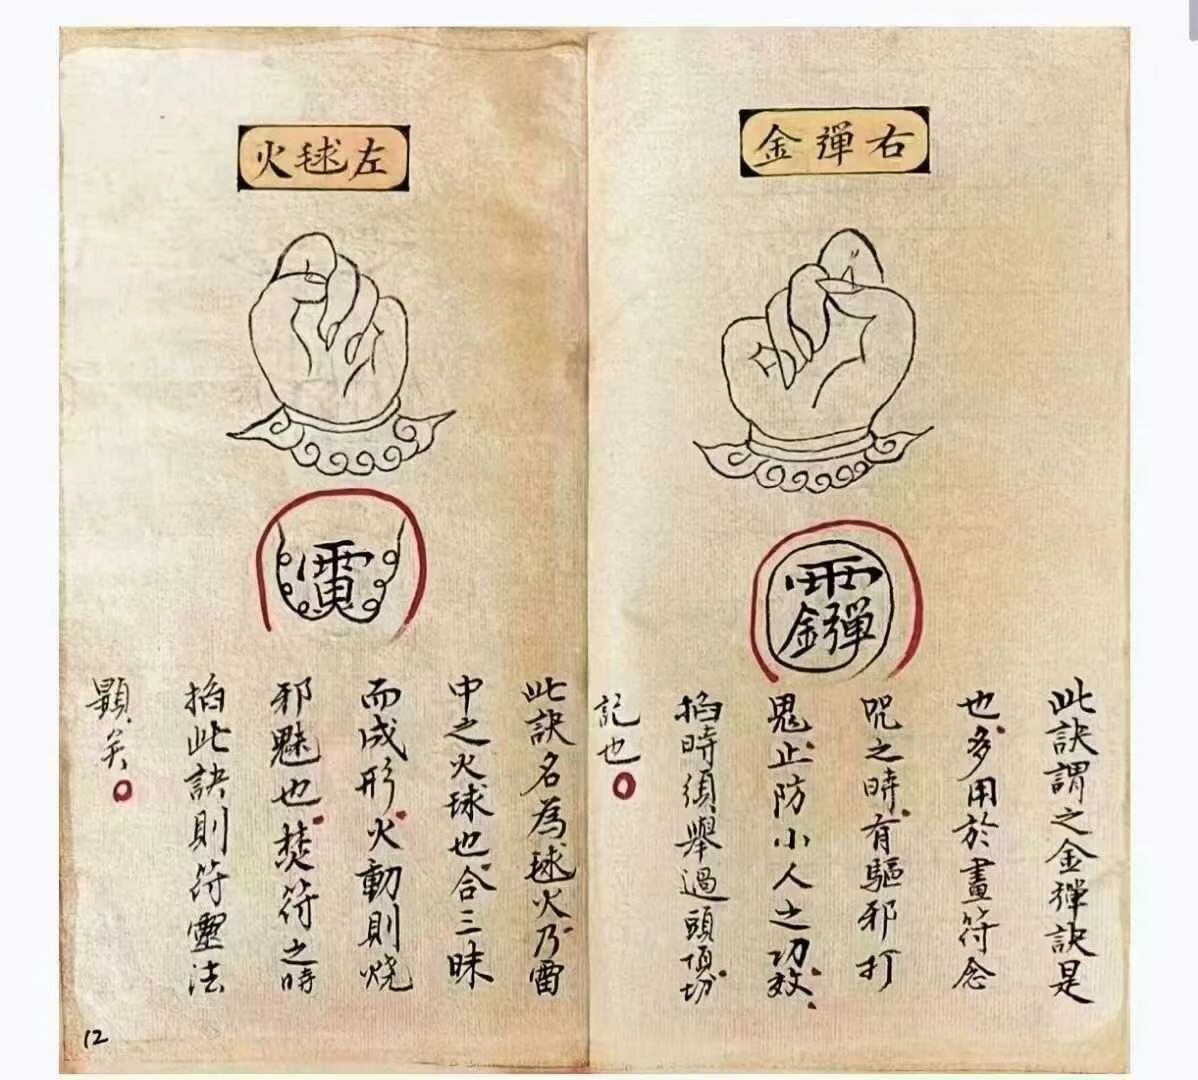 右彈金
此訣謂之金彈訣是
也、多用於畫符念
咒之時、有驅邪打
鬼、止防小人之功效、
掐時須舉過頭頂、切
記也。
左毬火
此訣名為毬火、乃雷
中之火球也、合三昧
而成形、火動則燒
邪魅也、焚符之時
掐此訣則符靈法
顯矣。
12